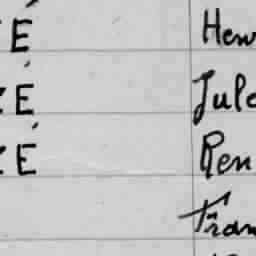 É Hen
É Jule
É Ren
Fran